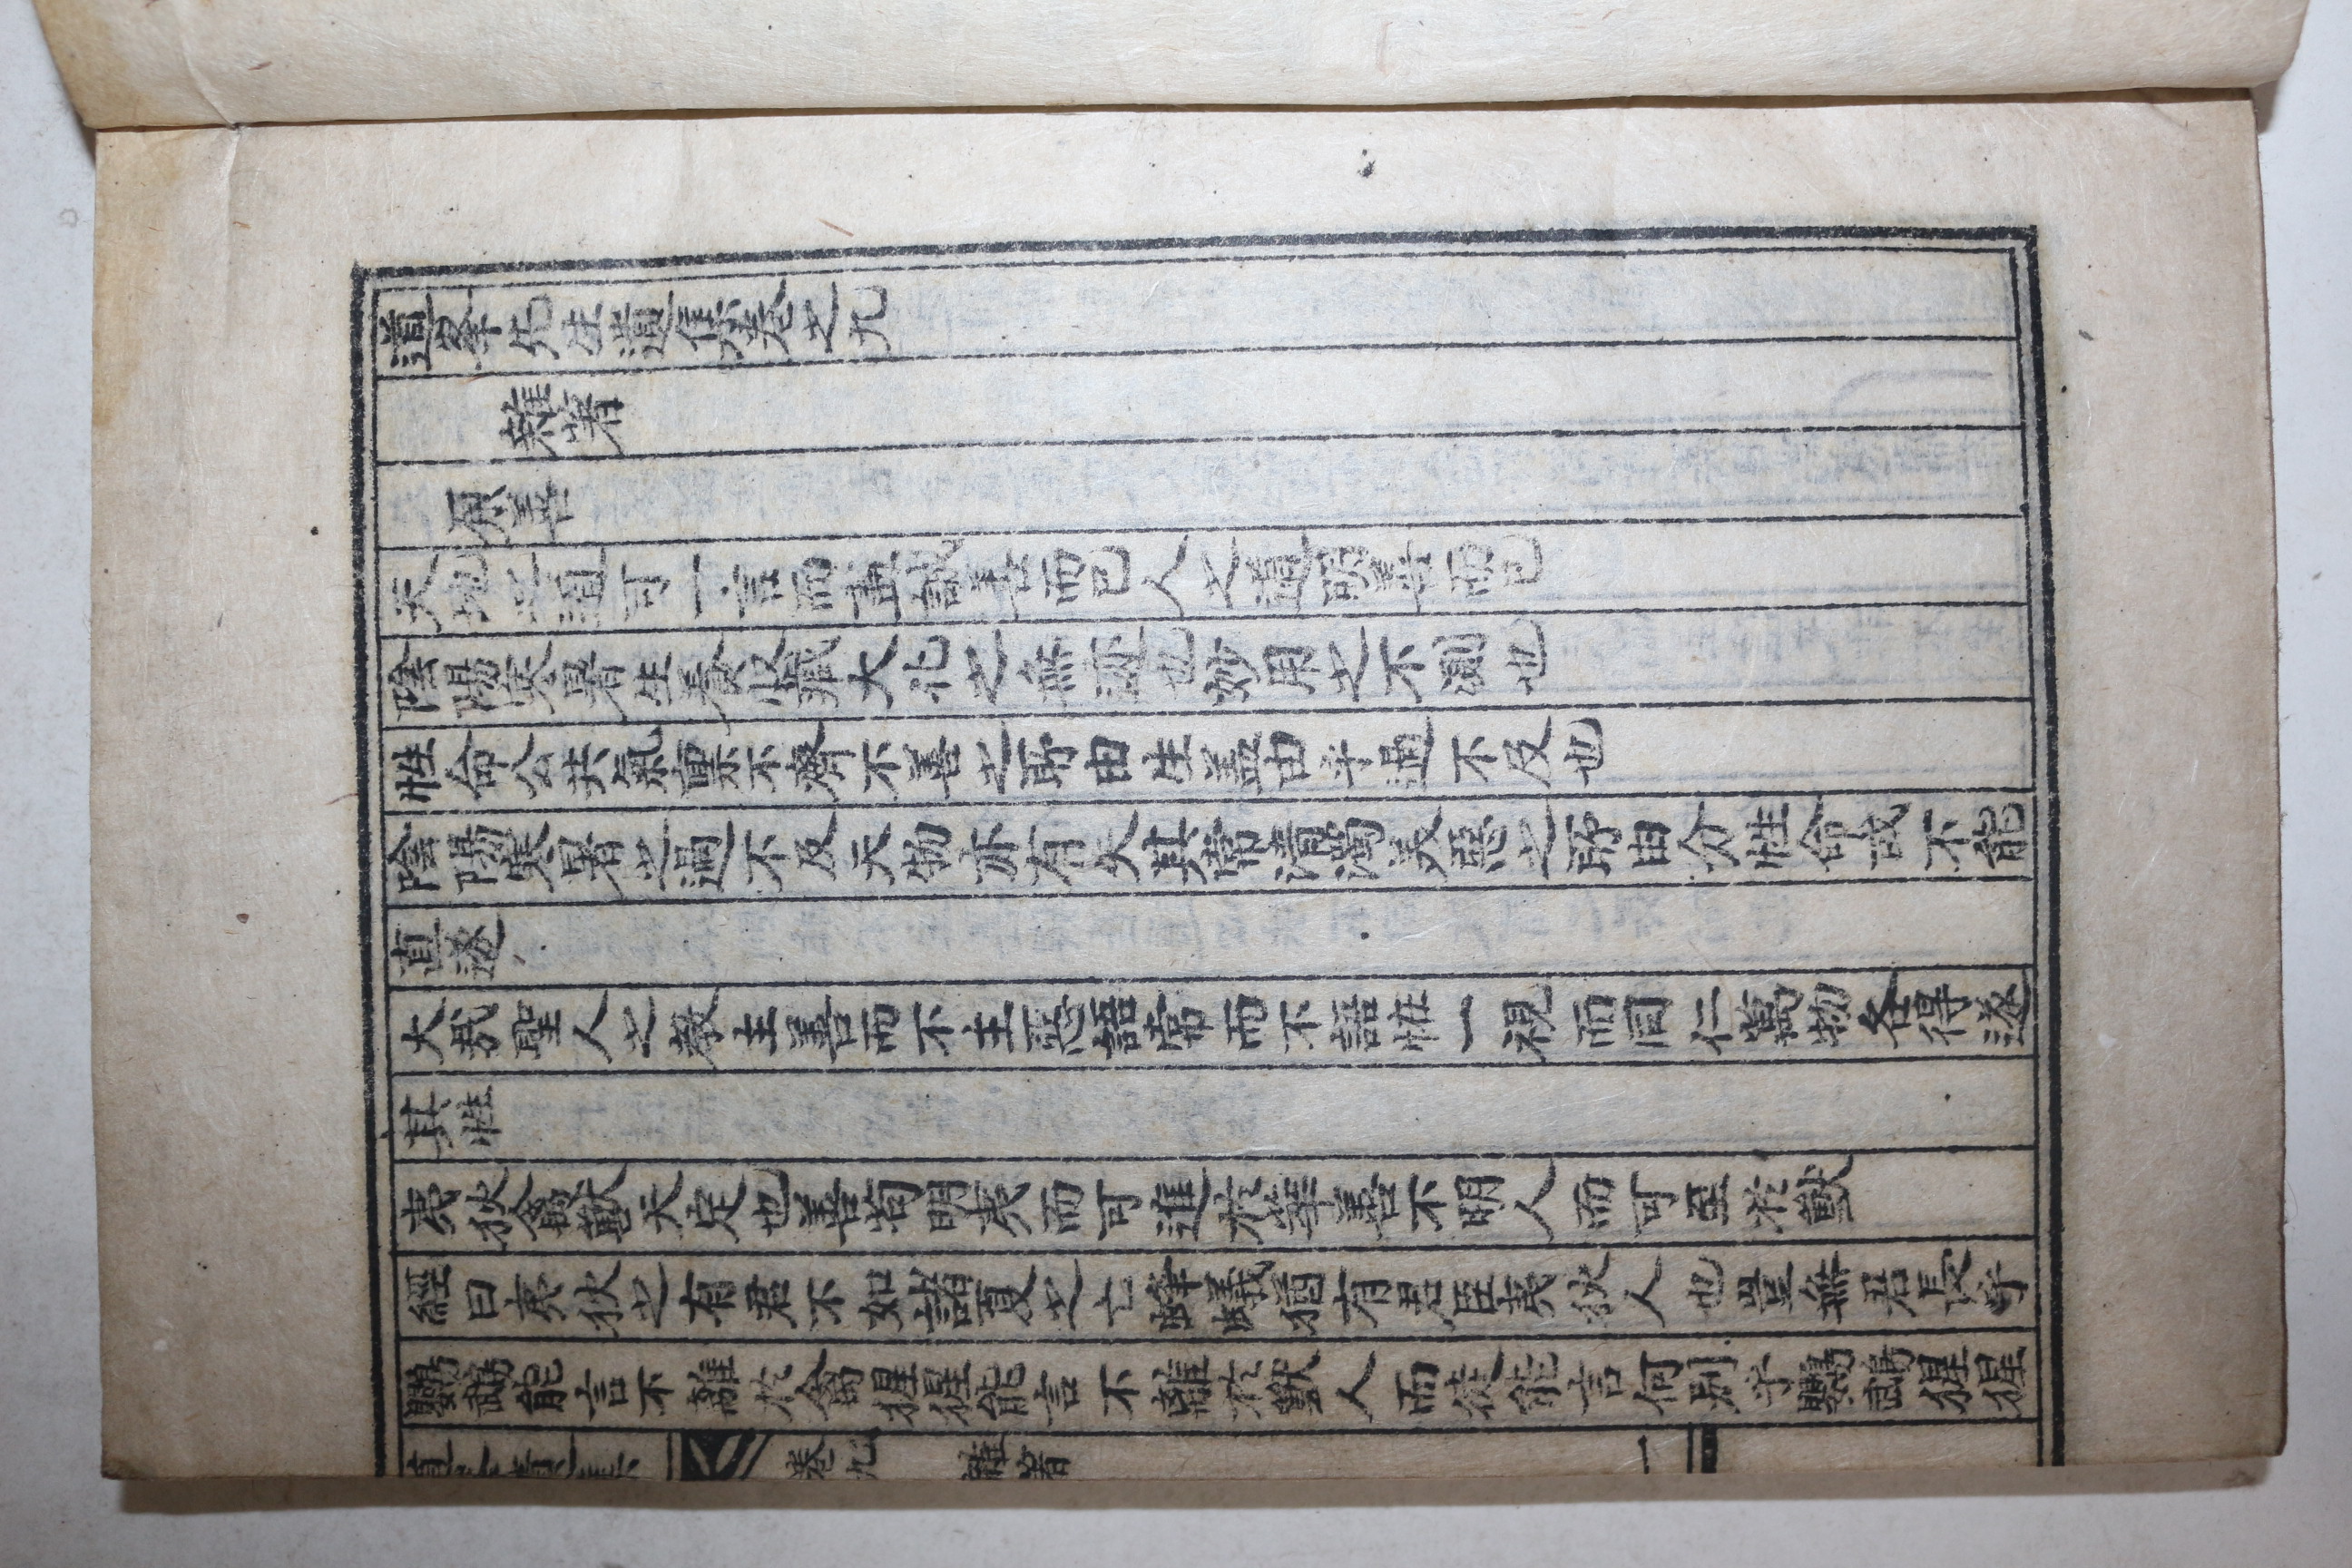 道峯先生遺集卷之九
雜著
原善
天地之道可一言而盡誠善而已人之道明善而已
陰陽寒暑生養收藏大化之無迹也妙用之不測也
性命公共氣禀不齊不善之所由生盖由乎過不及也
陰陽寒暑之過不及天物亦有失其常清濁美惡之所由分性命或不能
直遂
大哉聖人之教主善而不主惡語常而不語恠一視而同仁萬物各得遂
其性
夷狄禽獸天定也善苟明夷而可進於華善不明人而可至於獸
經曰夷狄之有君不如諸夏之亡蜂蟻猶有君臣夷狄人也豈無君長乎
鸚鵡能言不離於禽猩猩能言不離於獸人而徒能言何别乎鸚鵡猩猩
道峯先生遺集 卷九 雜著 一